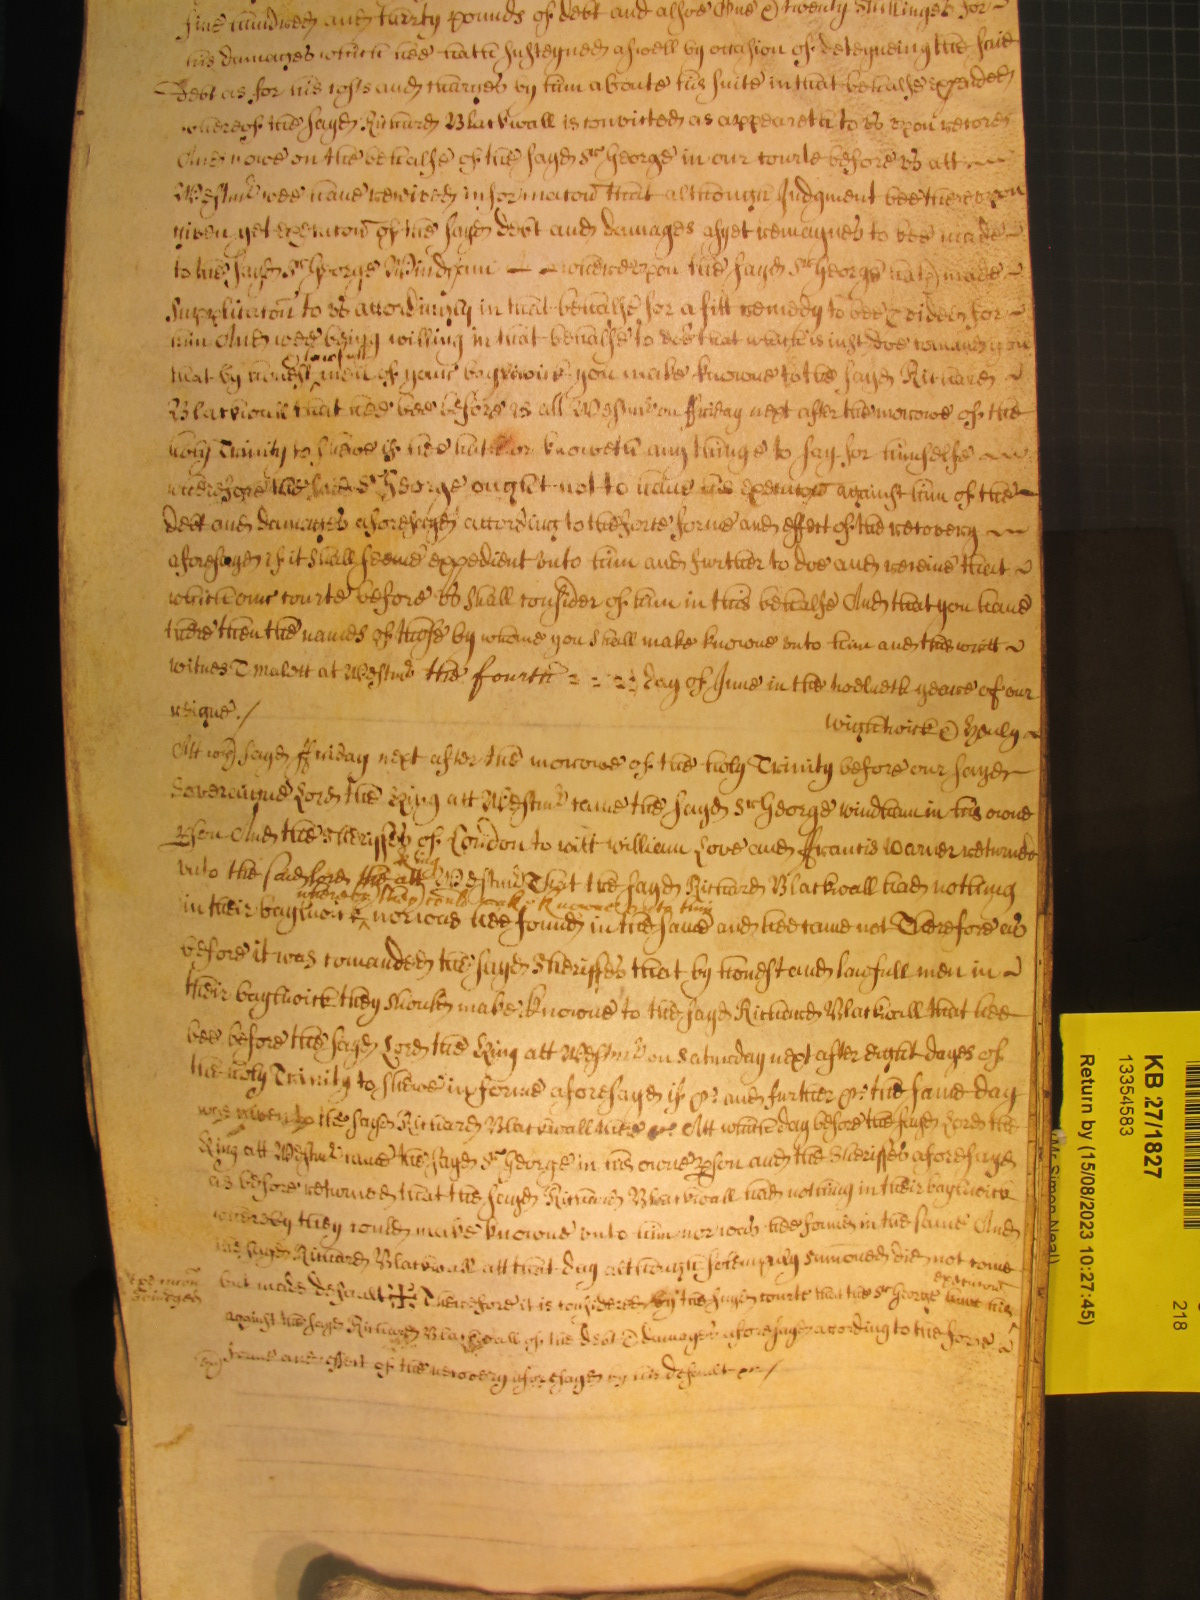 five hundred and thirty pounds of debt and alsoe One & twenty shillinges for
his damages which hee hath susteyned aswell by occasion of deteyneing the said
Debt as for his costs and charges by him aboute his suite in that behalfe expended
whereof the sayd Richard Blackwall is convicted as appeareth to us upon record
And nowe on the behalfe of the sayd Sr George in our courte before us att
Westmr wee have received informacon that although Judgment bee thereupon
given yet execucon of the sayd debt and damages as yet remaynes to bee made
to the sayd Sr George Windham whereupon the sayd Sr George hath made
Supplicacon to us accordingly in that behalfe for a fitt remedy to bee pvided for
him And wee being willing in that behalfe to doe that which is just doe comand you
that by honest & lawfull men of your bayliwick you make knowne to the sayd Richard
Blackwall that hee bee before us att Westmr on ffriday next after the morrowe of the
holy Trinity to shewe if hee hath or knoweth any thinge to say for himselfe
wherefore the said Sr George ought not to have his execucon against him of the
debt and damages aforesayd according to the force forme and effect of the recovery
aforesayd if it shall seeme expedient unto him and further to doe and receive that
which our courte before us shall consider of him in this behalfe And that you have
there then the names of those by whome you shall make knowne unto him and this writt
witnes T Malett at Westmr the fourth day of June in the twelveth yeare of our
reigne./
Wightwick & Henly
Att wch sayd ffriday next after the morrowe of the holy Trinity before our sayd
Sovereigne Lord the King att Westmr came the sayd Sr George windham in his owne
pson And the Sheriffes of London to witt william Love and ffrancis Warner returned
unto the said lord the King att Westmr That the sayd Richard Blackwall had nothing
in their bayliwick whereby they could make knowne unto him nor was hee found in the same and hee came not Therefore as
before it was comanded the sayd Sheriffes that by honest and lawfull men in
their bayliwick they should make knowne to the sayd Richard Blackwall that hee
bee before the sayd Lord the King att Westmr on Saturday next after eight dayes of
the holy Trinity to shewe in forme aforesayd if &c and further &c the same day
was given to the sayd Richard Blackwall here &c Att which day before the sayd Lord the
King att Westmr came the sayd Sr George in his owne pson and the Sheriffes aforesayd
as before returned that the sayd Richard Blackwall had nothing in their bayliwick
whereby they could make knowne unto him nor was hee found in the same And
the sayd Richard Blackwall att that day although solempnly summoned did not come
but made default Therefore it is considered by the sayd courte that the Sr George have his execucon
against the sayd Richard Blackwall of the debt & damages aforesayd according to the force
forme and effect of the recovery aforesayd by his default &c/
KB 27/1827
13354583
Return by (15/08/2023 10:27:45)
(Mr Simon Neal)
218